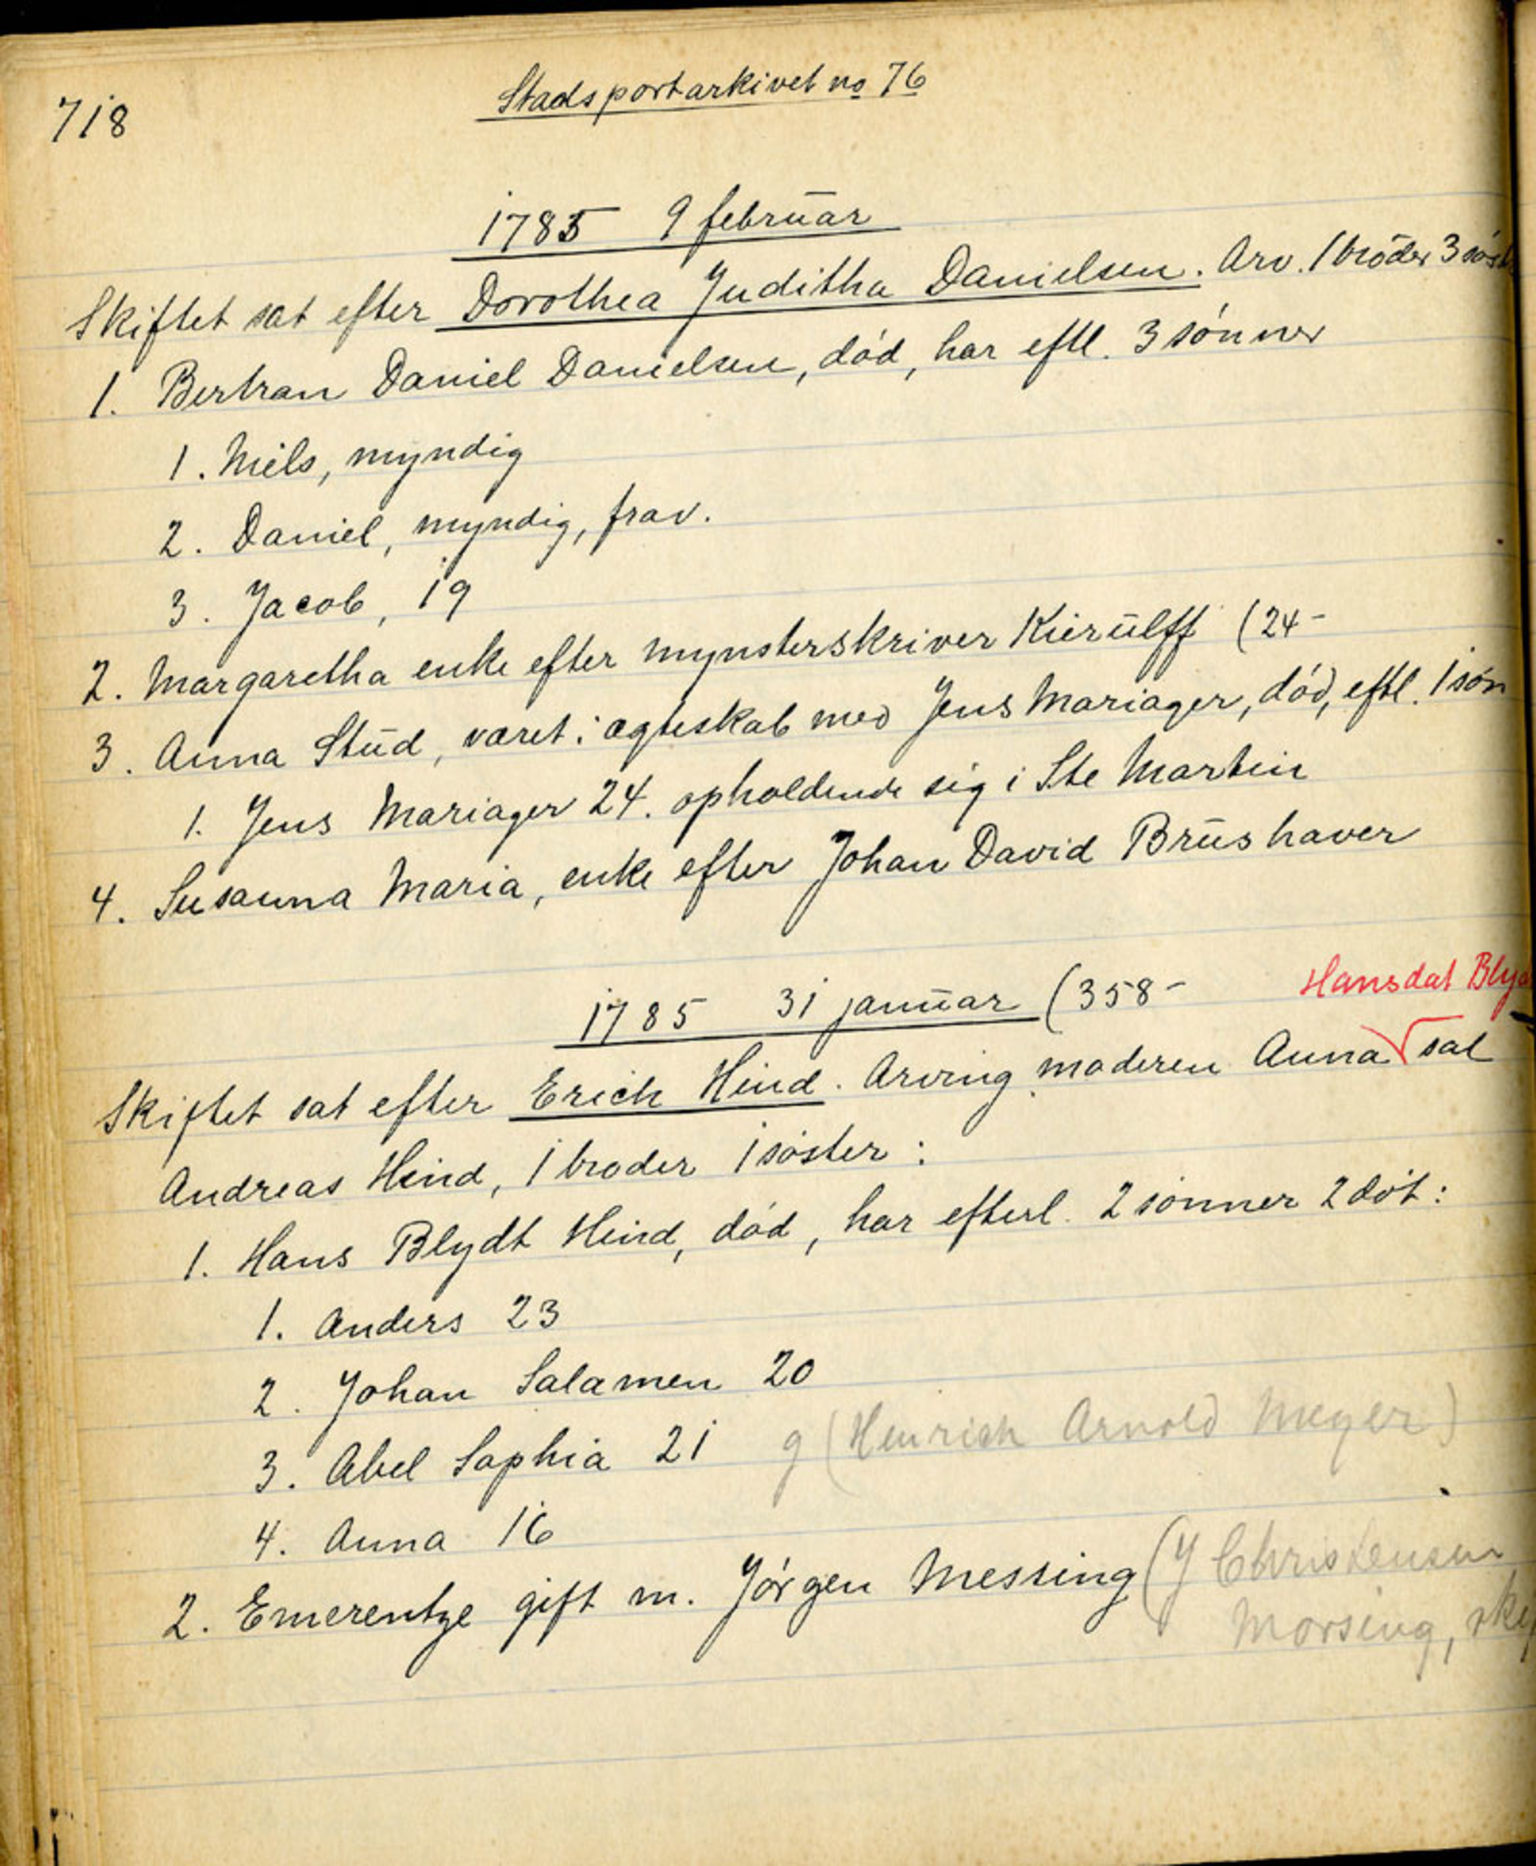 718
Stadsportarkivet no 76
1785 9 februar
Skiftet sat efter Dorothea Juditha Danielsen. Arv. 1 broder 3
1. Bertran Daniel Danielsen, død, har eftl. 3 sønner
1. Niels, myndig
2. Daniel, myndig, frav.
3. Jacob, 19
2. Margaretha enke efter mynsterskriver Kierulff (24-
3. Anna Stud, været i ægteskab med Jens Mariager, død, eftl. 1 søn
1. Jens Mariager 24. opholdende sig i Ste Martin
4. Susanna Maria, enke efter Johan David Brushaver
1785 31 januar (358-
Hansdat
Skiftet sat efter Erich Hind. Arving moderen Anna √ sal
Andreas Hind, 1 broder 1 søster:
1. Hans Blydt Hind, død, har efterl. 2 sønner 2 døt:
1. Anders 23
2. Johan Salamen 20
3. Abel Sophia 21 g (Henrich Arnold Meyer)
4. Anna 16
2. Emerentze gift m. Jørgen Messing (J Christensen
Morsing,